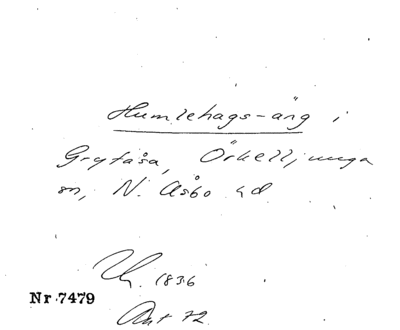 Humlehags-äng i
Grytåsa, Örkelljunga
sn, N. Åsbo hd
1836
Nr 7479
Akt 72